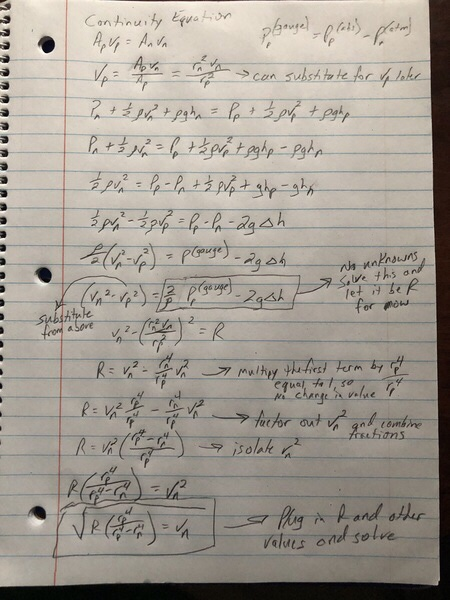 Continuity Equation
A_p v_p = A_n v_n
P_p^(gauge) = P_p^(abs) - P_n^(atm)
v_p = A_p v_n / A_p = r_n^2 v_n / r_p^2 → can substitute for v_p later
P_n + 1/2 ρv_n^2 + ρgh_n = P_p + 1/2 ρv_p^2 + ρgh_p
P_n + 1/2 ρv_n^2 = P_p + 1/2 ρv_p^2 + ρgh_p - ρgh_n
1/2 ρv_n^2 = P_p - P_n + 1/2 ρv_p^2 + gh_p - gh_n
1/2 ρv_n^2 - 1/2 ρv_p^2 = P_p - P_n - 2gΔh
ρ/2 (v_n^2 - v_p^2) = P^(gauge) - 2gΔh
(v_n^2 - v_p^2) = 2/ρ P_p^(gauge) - 2gΔh
→ No unknowns
Solve this and
let it be R
for now
substitute
from above
v_n^2 - (r_n^2 v_n / r_p^2)^2 = R
R = v_n^2 - r_n^4/r_p^4 v_n^2 → multiply the first term by r_p^4/r_p^4
equal to 1, so
no change in value
R = v_n^2 r_p^4/r_p^4 - r_n^4/r_p^4 v_n^2 → factor out v_n^2 and combine
fractions
R = v_n^2 (r_p^4 - r_n^4 / r_p^4) → isolate v_n^2
R (r_p^4 / r_p^4 - r_n^4) = v_n^2
√R (r_p^4 / r_p^4 - r_n^4) = v_n → Plug in R and other
values and solve